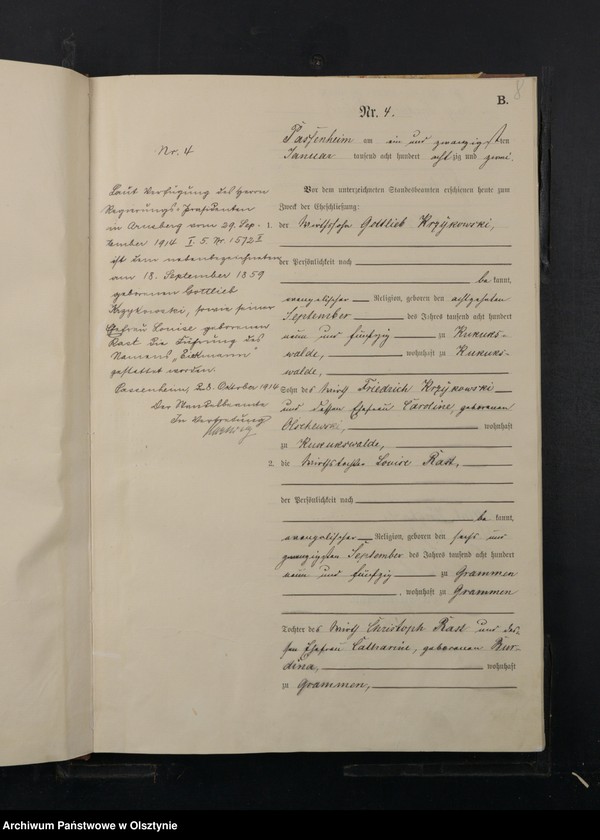 8
B.
Nr. 4.
Passenheim am ein und zwanzigsten
Januar tausend acht hundert achtzig und zwei.
Vor dem unterzeichneten Standesbeamten erschienen heute zum
Zweck der Eheschließung:
1. der Wirthssohn Gottlieb Krzykowski,
der Persönlichkeit nach
be kannt,
evangelischer Religion, geboren den achtzehnten
September des Jahres tausend acht hundert
neun und fünfzig zu Kukuks-
walde, wohnhaft zu Kukuks-
walde,
Sohn des Wirth Friedrich Krzykowski
und dessen Ehefrau Caroline, geborenen
Olschewski, wohnhaft
zu Kukukswalde,
2. die Wirthstochter Louise Rast,
der Persönlichkeit nach
be kannt,
evangelischer Religion, geboren den sechs und
zwanzigsten September des Jahres tausend acht hundert
neun und fünfzig zu Grammen
, wohnhaft zu Grammen
Tochter des Wirth Christoph Rast und des-
sen Ehefrau Catharine, geborenen Bur-
dina, wohnhaft
zu Grammen,
Nr. 4
Laut Verfügung des Herrn
Regierungs-Präsidenten
in Arnsberg vom 29. Sep-
tember 1914 I. 5. Nr. 1572
ist dem nebenbezeichneten
am 18. September 1859
geborenen Gottlieb
Krzykowski, sowie seiner
Ehefrau Louise geborenen
Rast die Führung des
Namens "Eickmann"
gestattet worden.
Passenheim, 28. Oktober 1914
Der Standesbeamte
In Vertretung
Archiwum Państwowe w Olsztynie